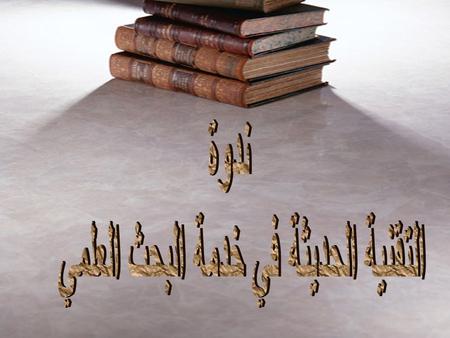 ندوة
التقنية الحديثة في خدمة البحث العلمي